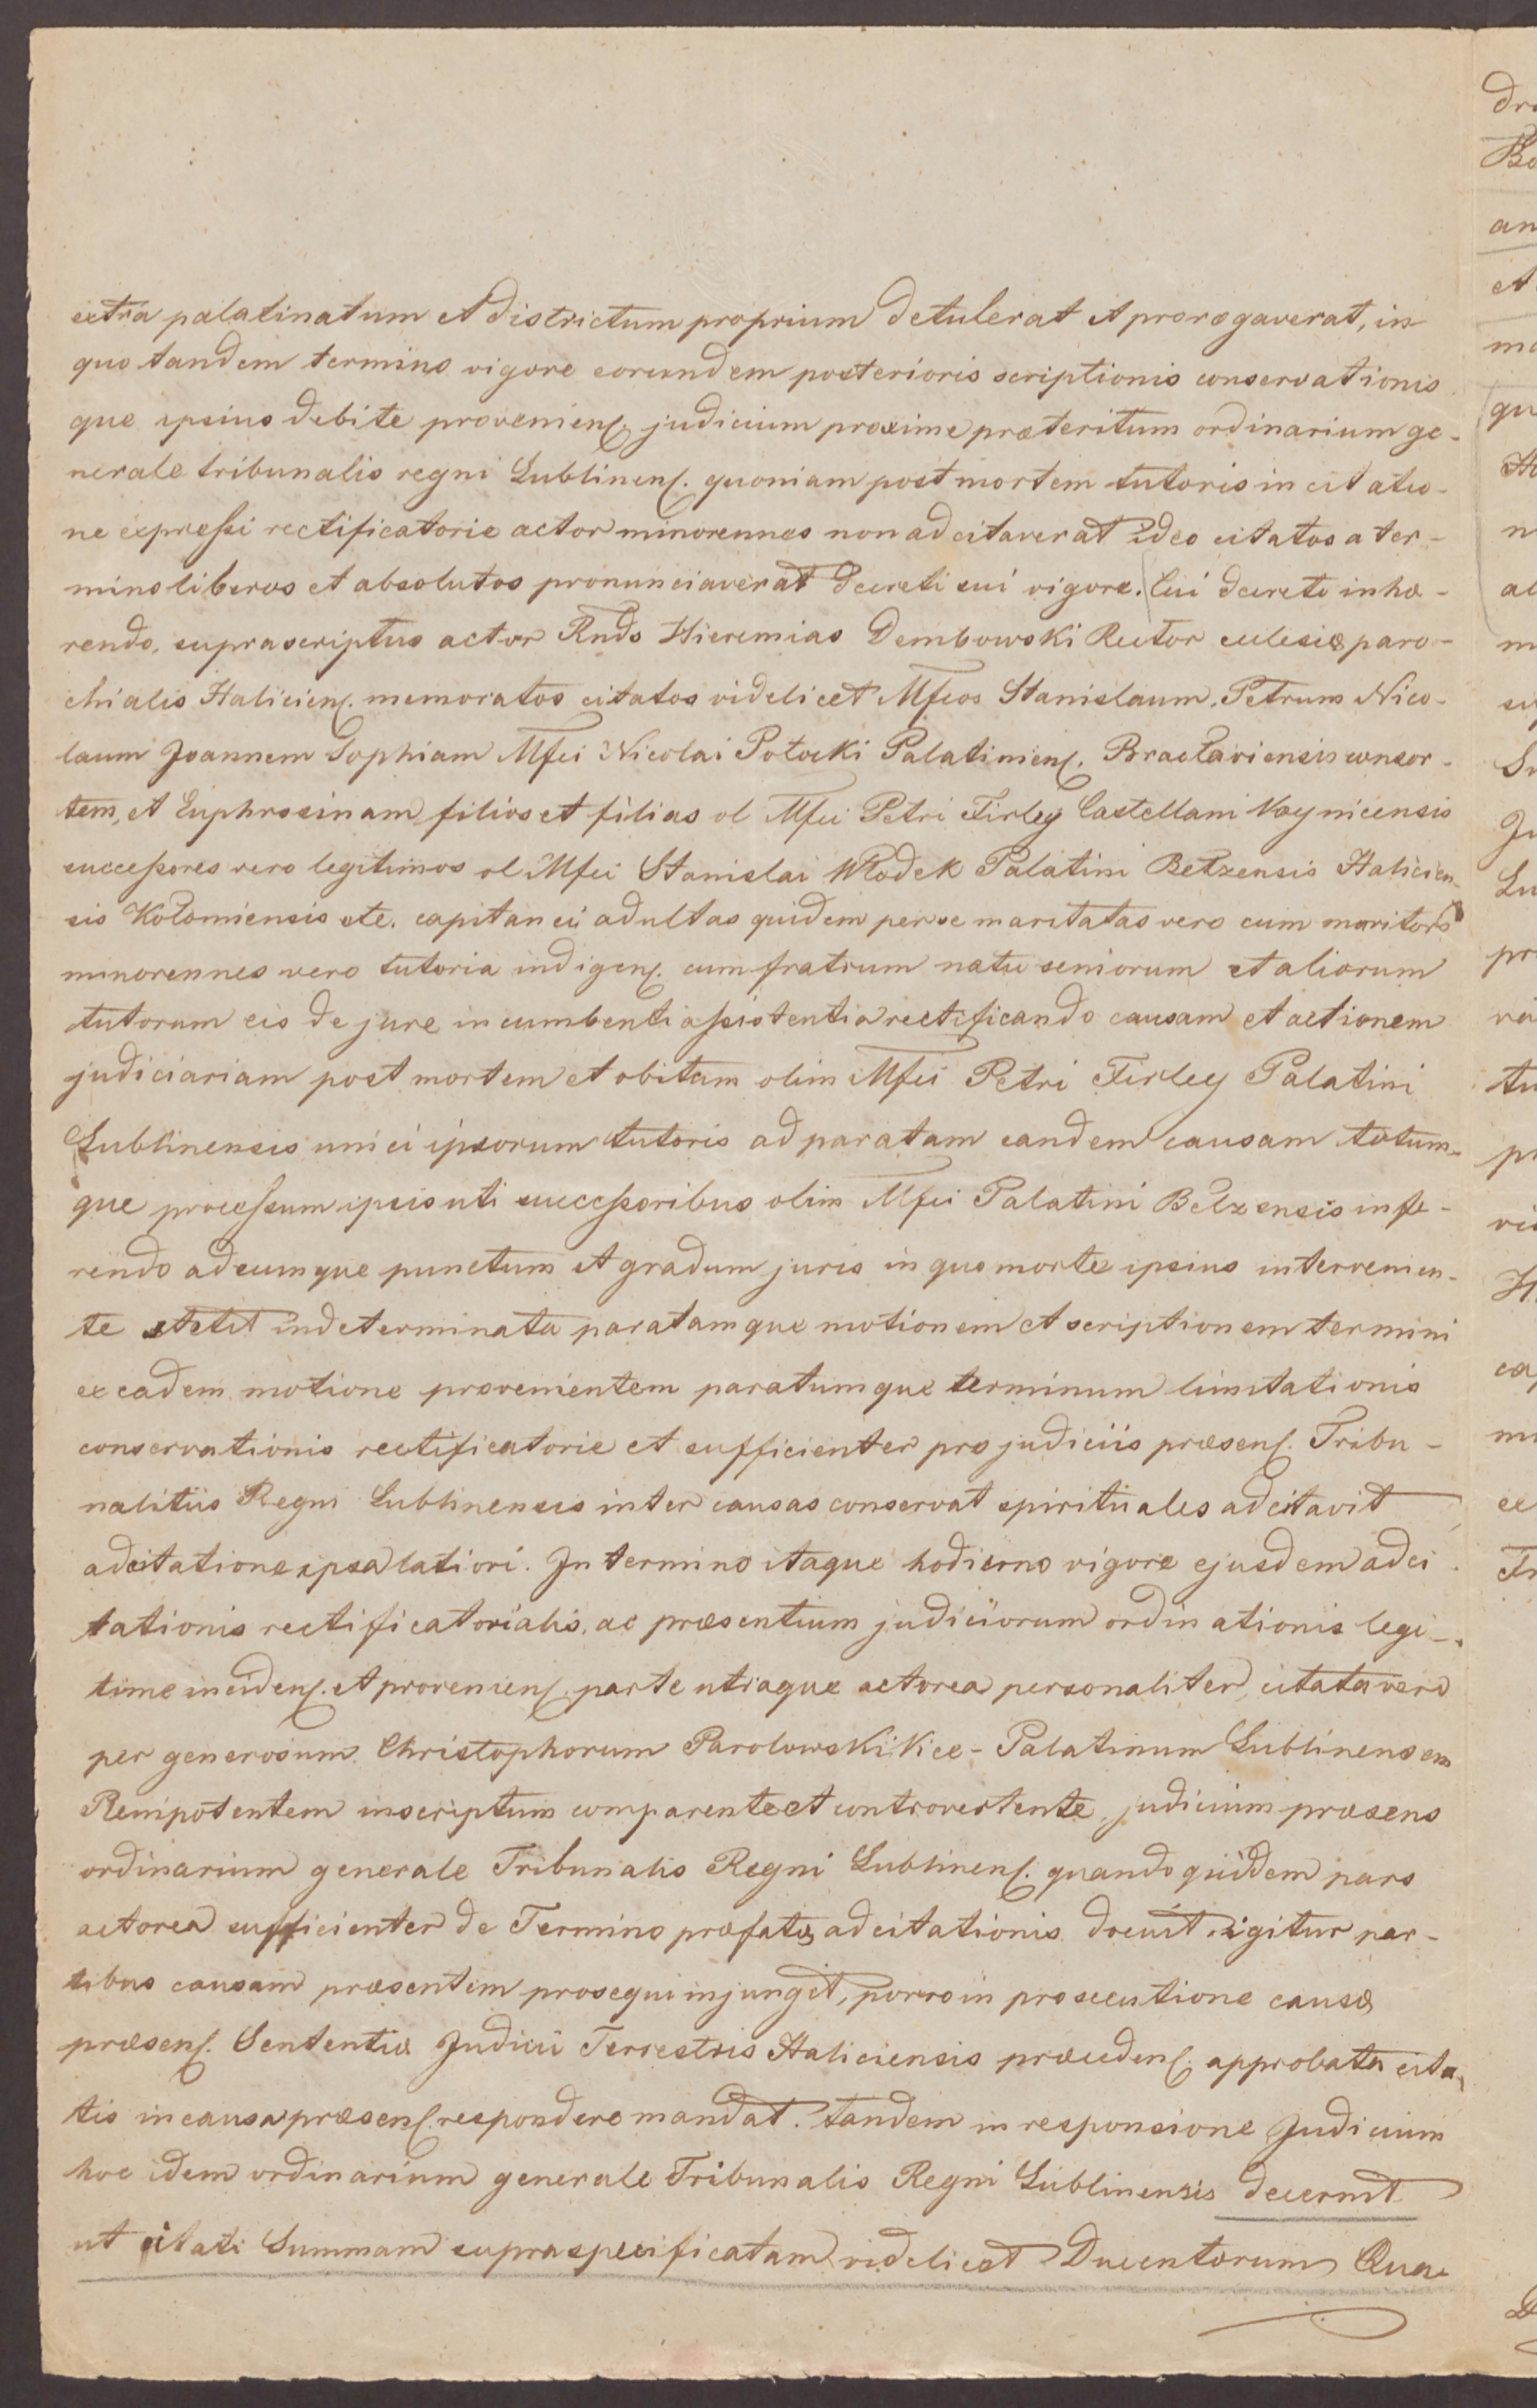 extra palatinatum et districtum proprium detulerat et prorogaverat, in
quo tandem termino vigore eorundem posterioris scriptionis conservationis
que ipsius debite provenienſ. judicium proxime præteritum ordinarium ge-
nerale tribunalis regni Lublinenſ. quoniam post mortem tutoris in citatio-
ne expreſsi rectificatorie actor minorennes non adcitaverat ideo citatos a ter-
mino liberos et absolutos pronunciaverat decreti sui vigore. Cui decreto inhæ-
rendo, suprascriptus actor Rndo Hieremias Dembowski Rector eclesiæ paro-
chialis Halicienſ. memoratos citatos videlicet Mfcos Stanislaum, Petrum Nico-
laum Joannem Sophiam Mfci Nicolai Potocki Palatinienſ. Bractaviensis consor-
tem, et Euphrosinam filios et filias ol Mfci Petri Firley Castellani Woynicensis
succeſsores vero legitimos ol Mfci Stanislai Włodek Palatini Betzensis Halicien-
sis Kołomiensis etc. capitanei adultas quidem per se maritatas vero cum maritors
minorennes vero tutoria indigenſ. cum fratrum natu seniorum et aliorum
tutorum eis de jure incumbenti aſsistentia rectificando causam et actionem
judiciariam post mortem et obitam olim Mfci Petri Firley Palatini
Lublinensis unici ipsorum tutoris ad paratam eandem causam totum-
que proceſsum ipsis uti succeſsoribus olim Mfci Palatini Belzensis infe-
rendo ad eumque punctum et gradum juris in quo morte ipsius intervenien-
te stetit indeterminata paratamque motionem et scriptionem termini
ex eadem motione provenientem paratumque terminum limitationis
conservationis rectificatorie et sufficienter pro judiciis præsenſ. Tribu-
nalitiis Regni Lublinensis inter causas conservat spirituales adcitavit
adcitatione ipsa latiori. In termino itaque hodierno vigore ejusdem adci-
tationis rectificatorialis, ac præsentium judiciiorum ordinationis legi-
time incidenſ. et provenienſ. parte utraque actorea personaliter, citata vero
per generosum Christophorum Parolowski Vice-Palatinum Lublinensem
Plenipotentem inscriptum comparente et controvertente, judicium præsens
ordinarium generale Tribunalis Regni Lublinenſ. quandoquidem pars
actorea sufficienter de Termino præfatæ adcitationis docuit, igitur par-
tibus causam præsentem prosequi injungit, porro in prosecutione causæ
præsenſ. Sententiæ Judicii Terrestris Haliciensis præcedenſ. approbata cita-
tis in causa præsenſ. respondere mandat. tandem in responsione Judicium
hoc idem ordinarium generale Tribunalis Regni Lublinensis decernit
ut citati Summam supraspecificatam videlicet Ducentorum Qua-